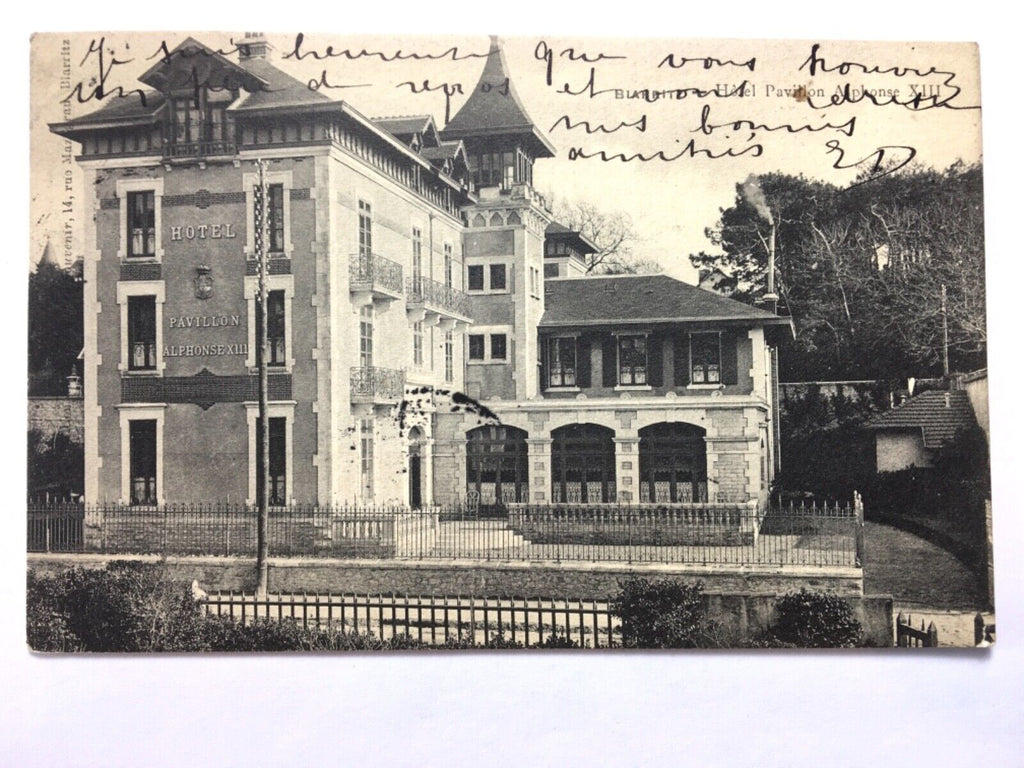 Je suis heureuse que vous trouviez
un peu de repos et vous adresse
mes bonnes
amitiés ED
BIARRITZ - Hôtel Pavillon Alphonse XIII
HOTEL
PAVILLON
ALPHONSE XIII
uvenir, 14, rue Biarritz